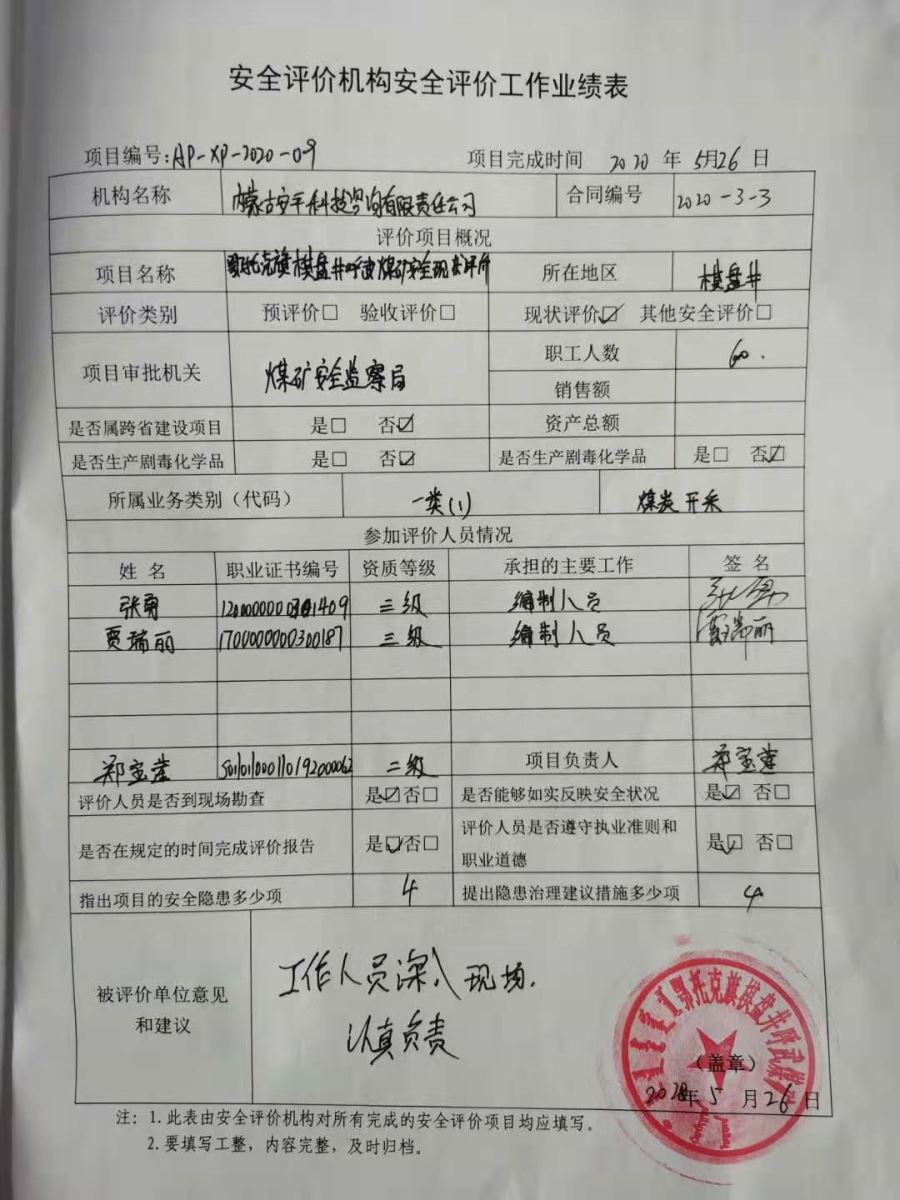 安全评价机构安全评价工作业绩表
项目编号:AP-XP-2020-09 项目完成时间 2020 年 5月26 日
机构名称 内蒙古安平科技咨询有限责任公司 合同编号 2020-3-3
评价项目概况
项目名称 鄂托克旗棋盘井呼武煤矿安全现状评价 所在地区 棋盘井
评价类别 预评价□ 验收评价□ 现状评价☑ 其他安全评价□
项目审批机关 煤矿安全监察局 职工人数 60.
销售额
是否属跨省建设项目 是□ 否☑ 资产总额
是否生产剧毒化学品 是□ 否☑ 是否生产剧毒化学品 是□ 否☑
所属业务类别（代码） 一类(1) 煤炭开采
参加评价人员情况
姓 名 职业证书编号 资质等级 承担的主要工作 签 名
张勇 三级 编制人员 张勇
贾瑞丽 1700000000300187 三级 编制人员 贾瑞丽
郑宝莲 二级 项目负责人 郑宝莲
评价人员是否到现场勘查 是☑否□ 是否能够如实反映安全状况 是☑ 否□
是否在规定的时间完成评价报告 是☑否□ 评价人员是否遵守执业准则和
职业道德 是☑ 否□
指出项目的安全隐患多少项 4 提出隐患治理建议措施多少项 4
被评价单位意见
和建议
工作人员深入现场.
认真负责
鄂托克旗棋盘井呼武煤矿
（盖章）
2020年 5 月26 日
注：1.此表由安全评价机构对所有完成的安全评价项目均应填写。
2.要填写工整，内容完整，及时归档。